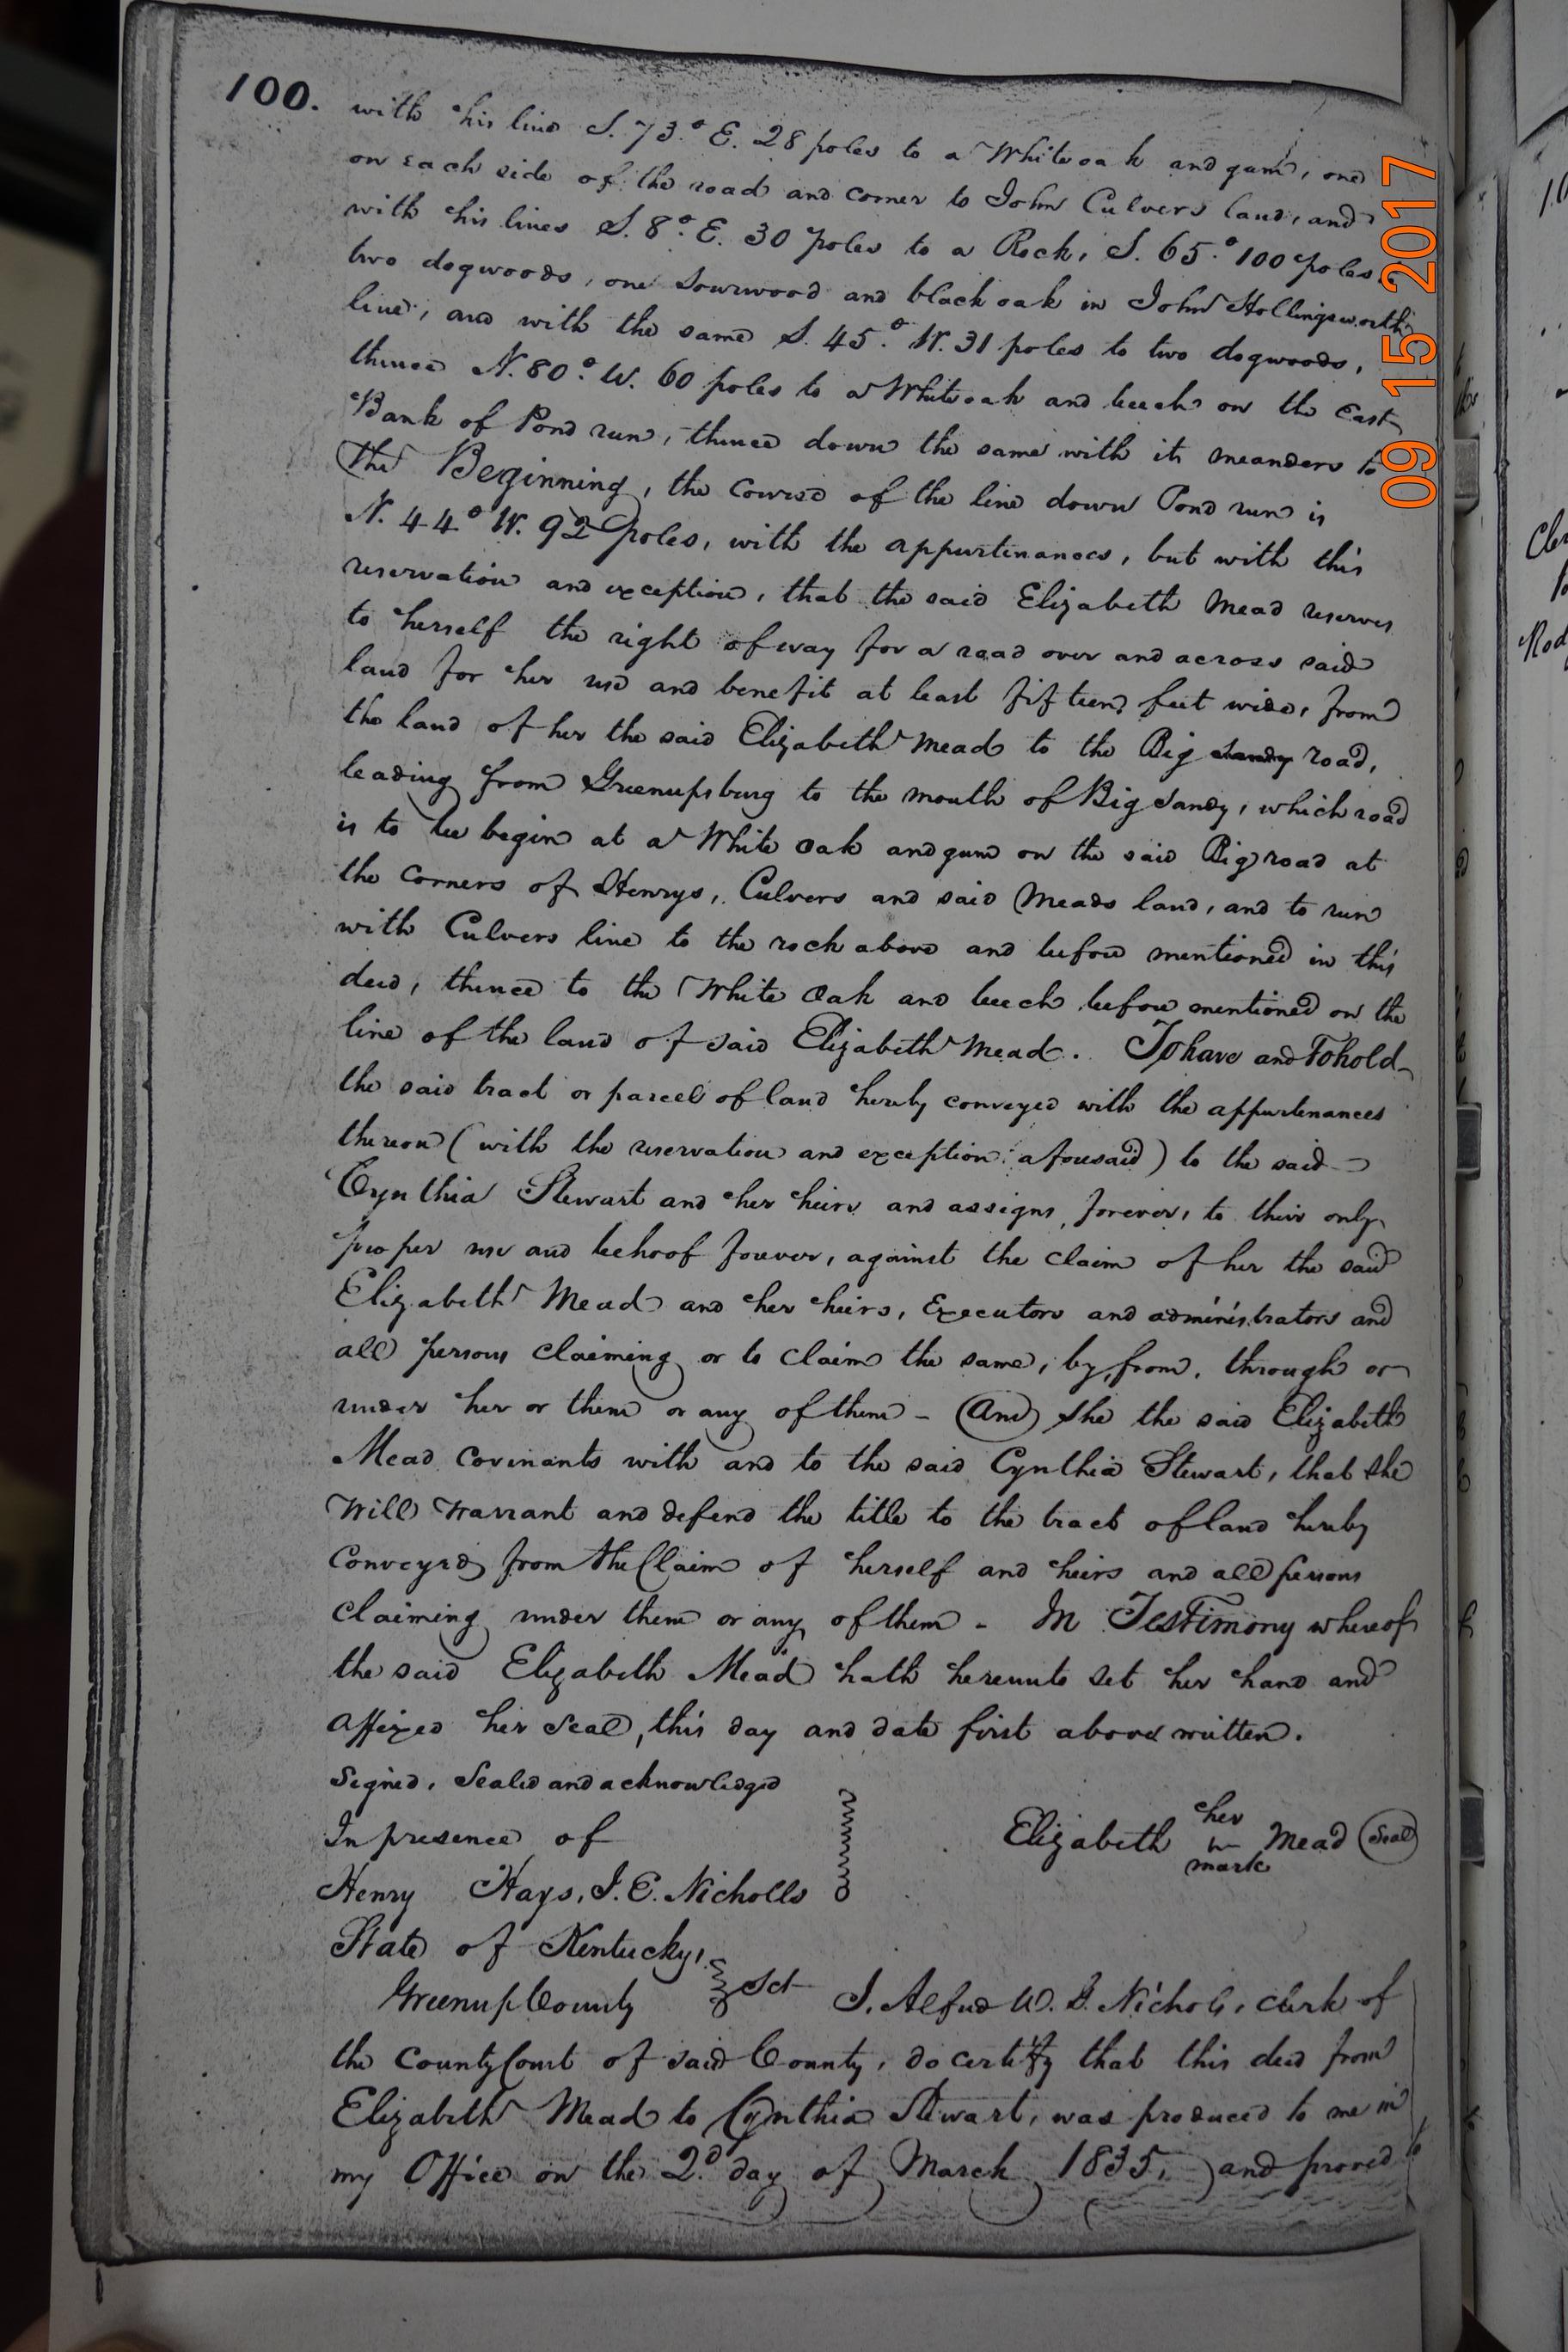 100.
with his line S. 73.° E. 28 poles to a Whiteoak and gum, one
on each side of the road and corner to John Culvers land, and
with his lines S. 8.° E. 30 poles to a Rock, S. 65.° 100 poles
two dogwoods, one sourwood and black oak in John Hollingsworth
line, and with the same S. 45.° W. 31 poles to two dogwoods,
thence N. 80.° W. 60 poles to a Whiteoak and beech on the East
Bank of Pond run, thence down the same with its meanders to
The Beginning, the course of the line down Pond run is
N. 44.° W. 92 poles, with the appurtinances, but with this
reservation and exception, that the said Elizabeth Mead reserves
to herself the right of way for a road over and across said
land for her use and benefit at least fifteen feet wide, from
the land of her the said Elizabeth Mead to the Big Sandy road,
leading from Greenupsburg to the mouth of Big Sandy, which road
is to be begin at a White Oak and gum on the said Big road at
the corners of Henrys, Culvers and said Meads land, and to run
with Culvers line to the rock above and before mentioned in this
deed, thence to the White Oak and beech before mentioned on the
line of the land of said Elizabeth Mead. To have and To hold
the said tract or parcel of land hereby conveyed with the appurtenances
thereon (with the reservation and exception aforesaid) to the said
Cynthia Stewart and her heirs and assigns, forever, to their only
proper use and behoof forever, against the claim of her the said
Elizabeth Mead and her heirs, Executors and administrators and
all persons claiming or to claim the same, by, from, through or
under her or them or any of them - And she the said Elizabeth
Mead covinants with and to the said Cynthia Stewart, that she
will warrant and defend the title to the tract of land hereby
conveyed from the Claim of herself and heirs and all persons
claiming under them or any of them - In Testimony whereof
the said Elizabeth Mead hath hereunto set her hand and
affixed her seal, this day and date first above written.
Signed, Sealed and acknowledged
In presence of
Elizabeth her mark Mead Seal
Henry Hays, J. E. Nicholls
State of Kentucky,
Greenup County Sct I, Alfred W. G. Nichols, clerk of
the County Court of said County, do certify that this deed from
Elizabeth Mead to Cynthia Stewart, was produced to me in
my Office on the 2.d day of March 1835, and proved
09 15 2017